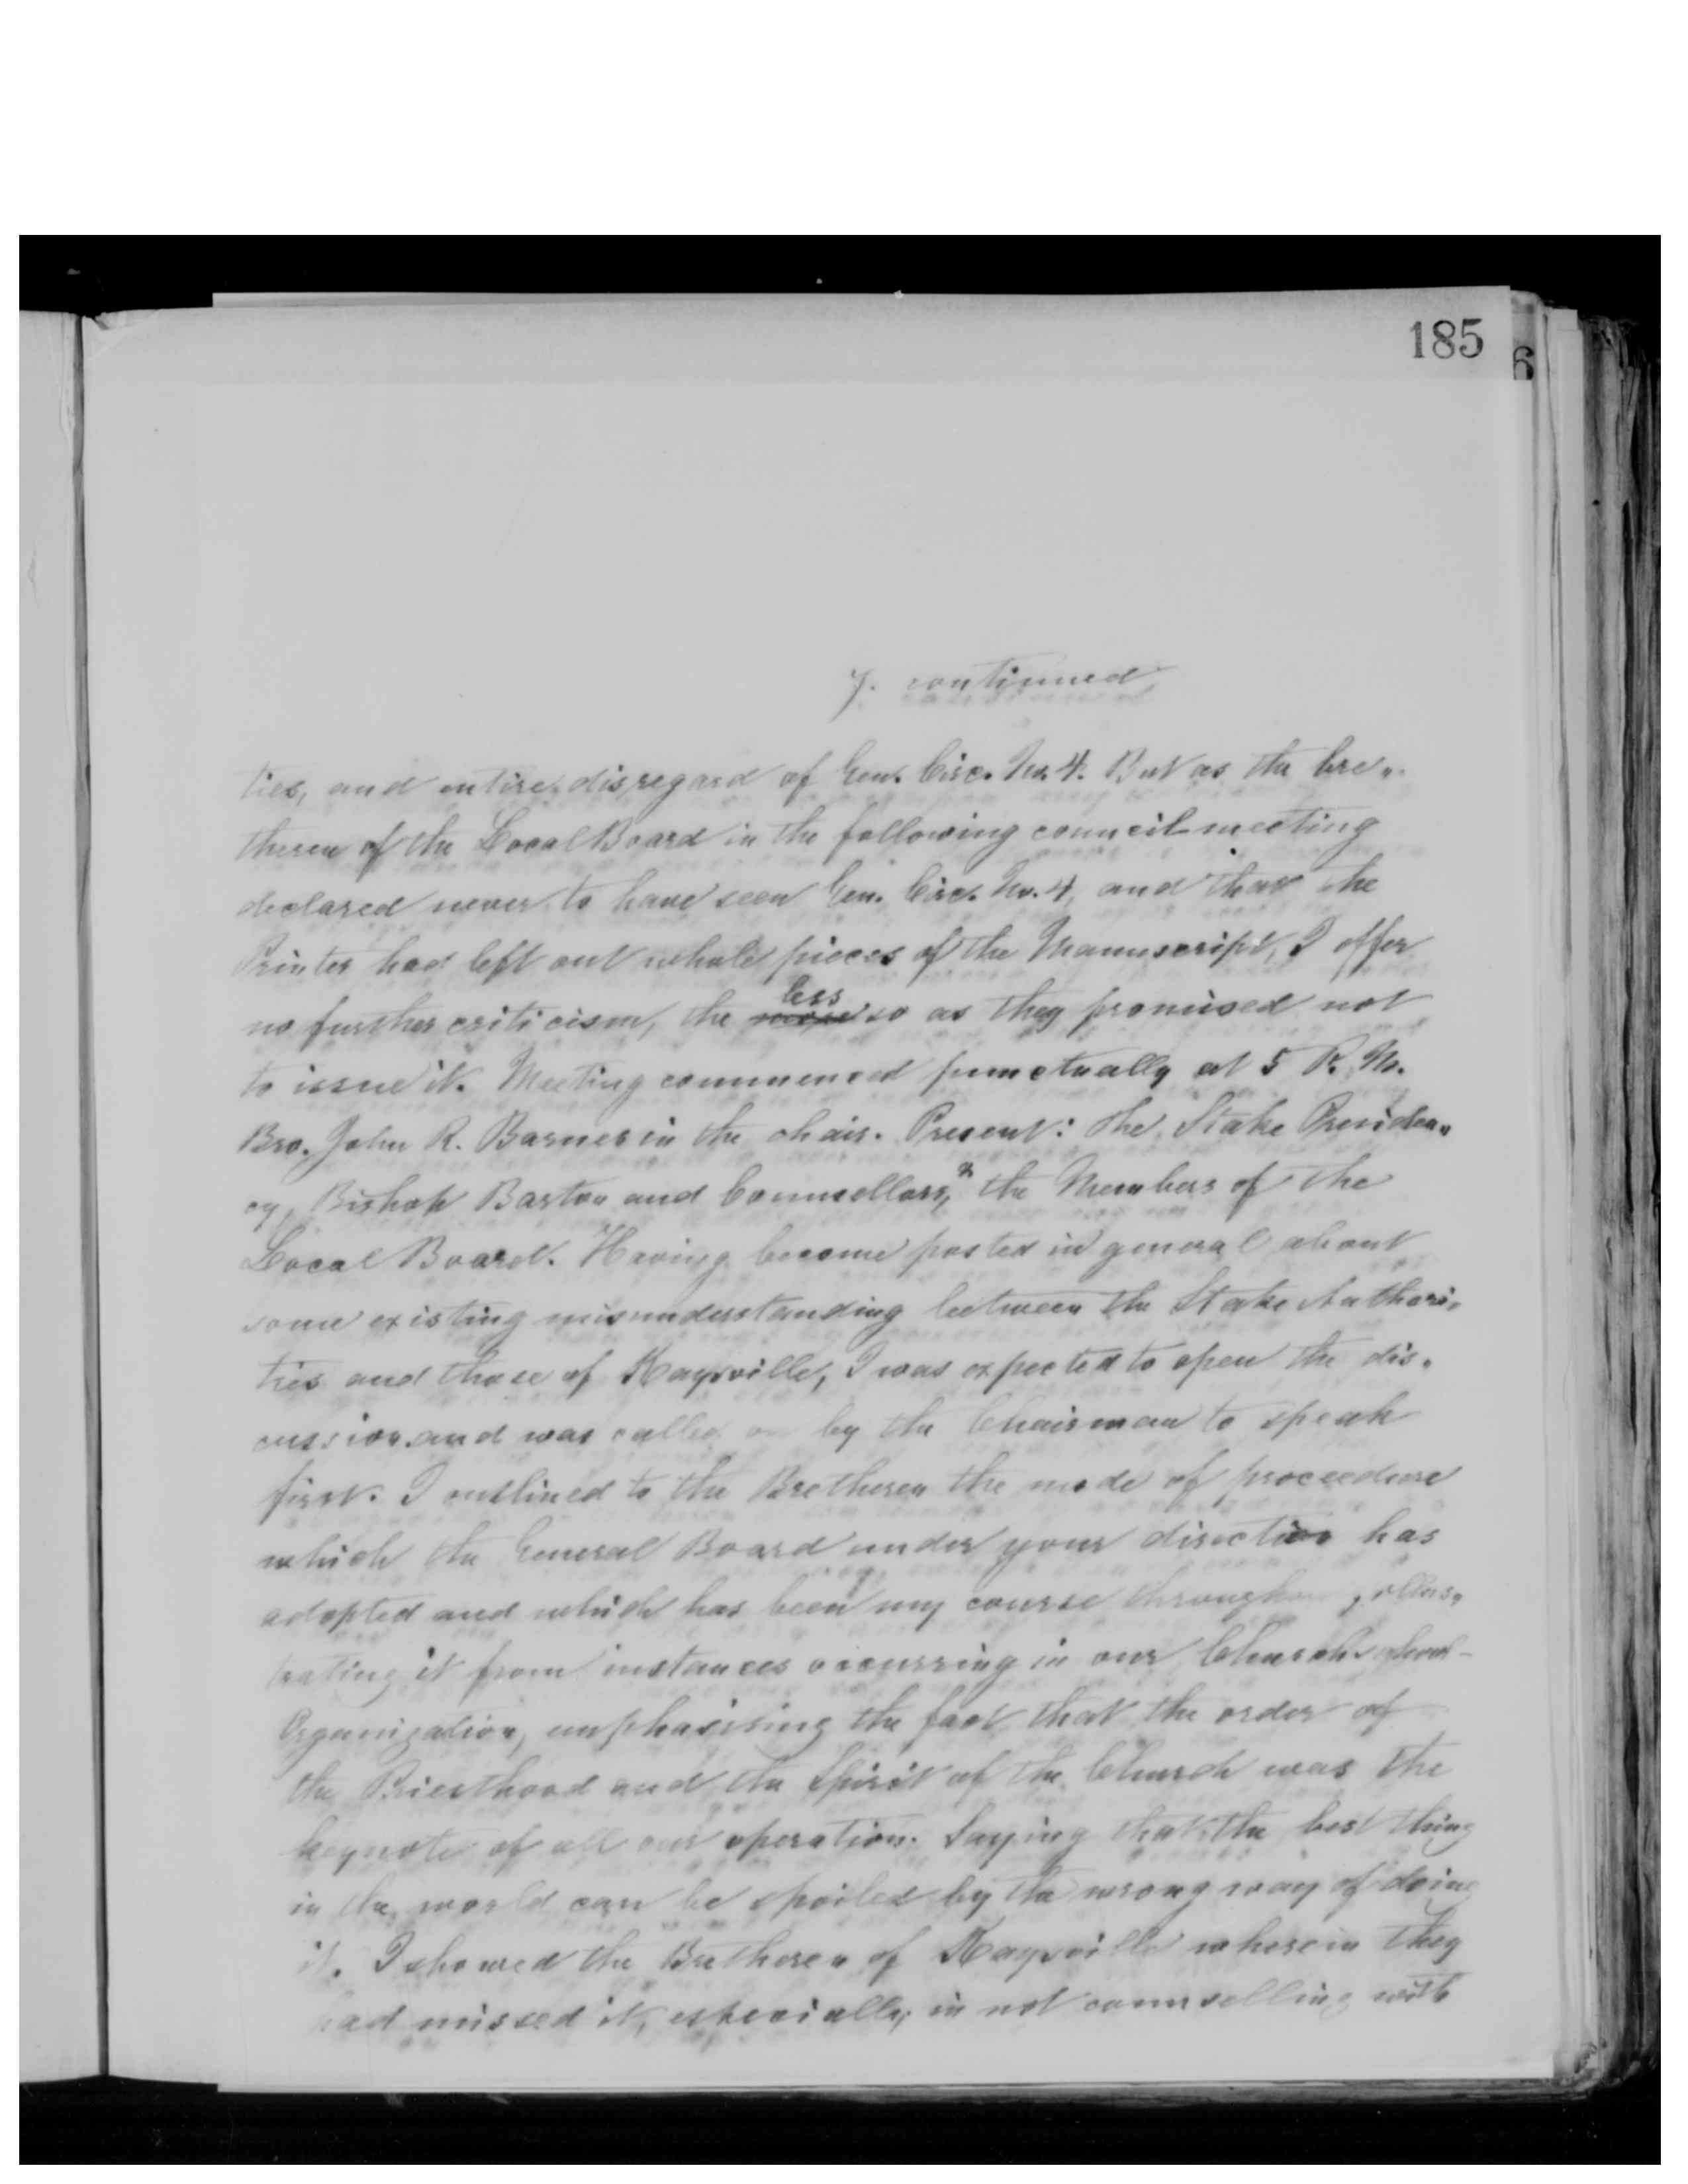 185
6
7. continued
ties, and entire disregard of Gen. Circ. No. 4. But as the bre„
theren of the Local Board in the following council meeting
declared never to have seen Gen. Circ. No. 4, and that the
Printer had left out whole pieces of the Manuscript, I offer
less
no further criticism, the more so as they promised not
to issue it. Meeting commenced punctually at 5 P. M.
Bro. John R. Barnes in the chair. Present: the Stake Presiden„
cy, Bishop Barton and Counsellors, & the Members of the
Local Board. Having become posted in general about
some existing misunderstanding between the Stake Authori„
ties and those of Kaysville, I was expected to open the dis„
cussion and was called on by the Chairman to speak
first. I outlined to the Bretheren the mode of proceedure
which the General Board under your direction has
adopted and which has been my course through , illus„
trating it from instances occurring in our Church school-
Organization, emphasising the fact that the order of
the Priesthood and the Spirit of the Church was the
keynote of all our operation. Saying that the best thing
in the world can be spoiled by the wrong way of doing
it. I showed the Bretheren of Kaysville wherein they
had missed it, especially, in not counselling with